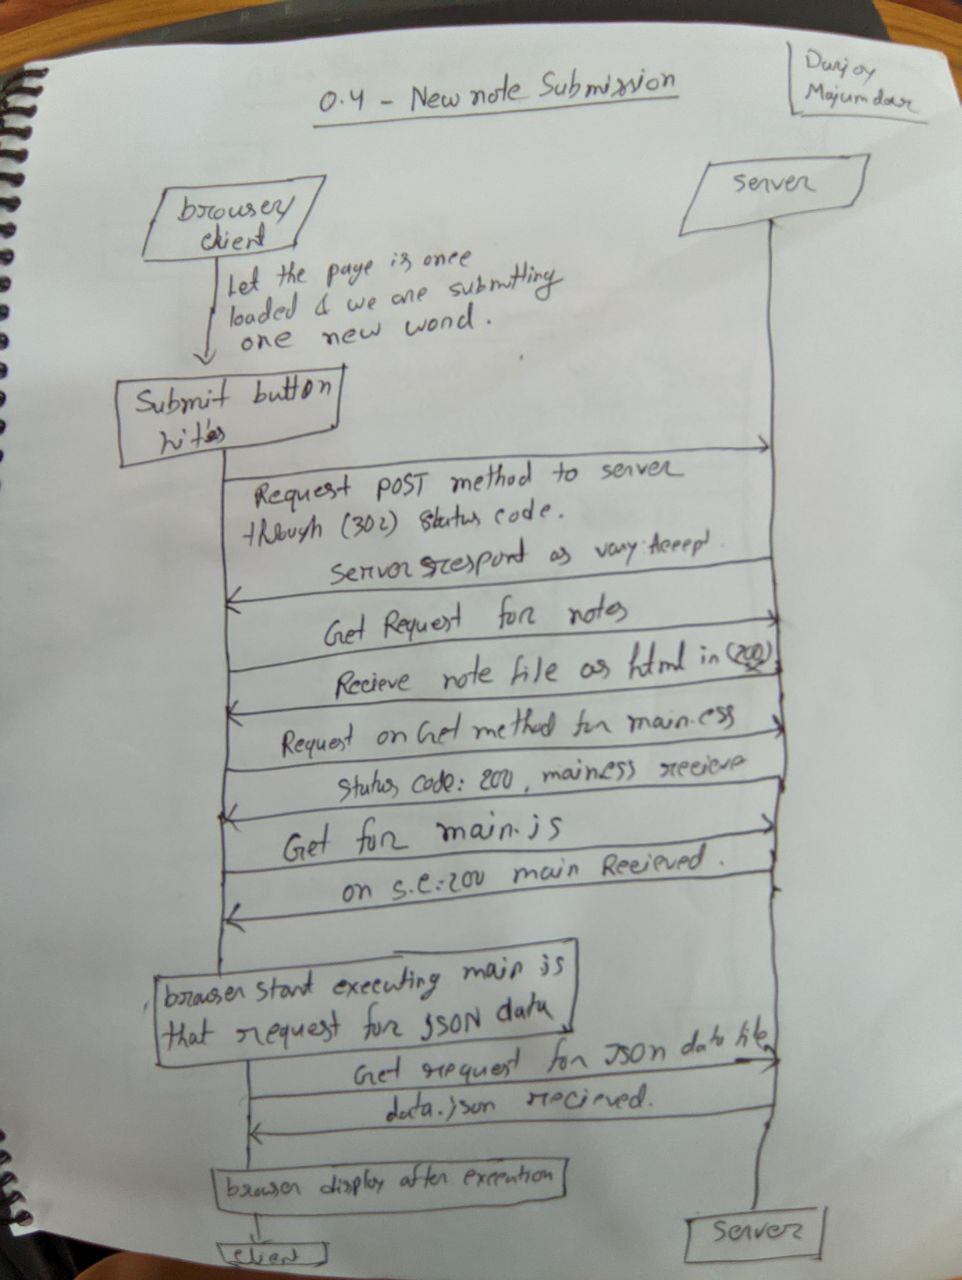 0.4 - New note Submission
Durjoy
Majumdar
browser/
client
server
Let the page is once
loaded & we are submitting
one new word.
Submit button
hit's
Request POST method to server
through (302) status code.
Server respont as vary: Accept.
Get Request for notes
Recieve note file as html in (200)
Request on Get method for main.css
Status code: 200, main.css recieve
Get for main.js
on s.c:200 main Recieved.
browser start executing main js
that request for JSON data
Get request for JSON data file
data.json recieved.
browser display after execution
client
Server